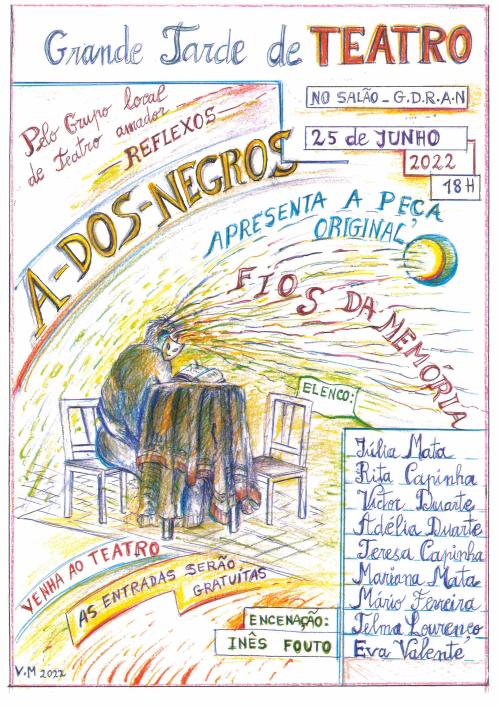 Grande Tarde de TEATRO
NO SALÃO - G.D.R.A.N
Pelo Grupo local
de Teatro amador
- REFLEXOS -
25 de JUNHO
2022
18H
A-DOS-NEGROS
APRESENTA A PEÇA
ORIGINAL,
FIOS DA MEMÓRIA
ELENCO:
Júlia Mata
Rita Capinha
Victor Duarte
Adélia Duarte
Teresa Capinha
Mariana Mata
Mário Ferreira
Telma Lourenço
Eva Valente
VENHA AO TEATRO
AS ENTRADAS SERÃO
GRATUÍTAS
ENCENAÇÃO:
INÊS FOUTO
V.M 2022